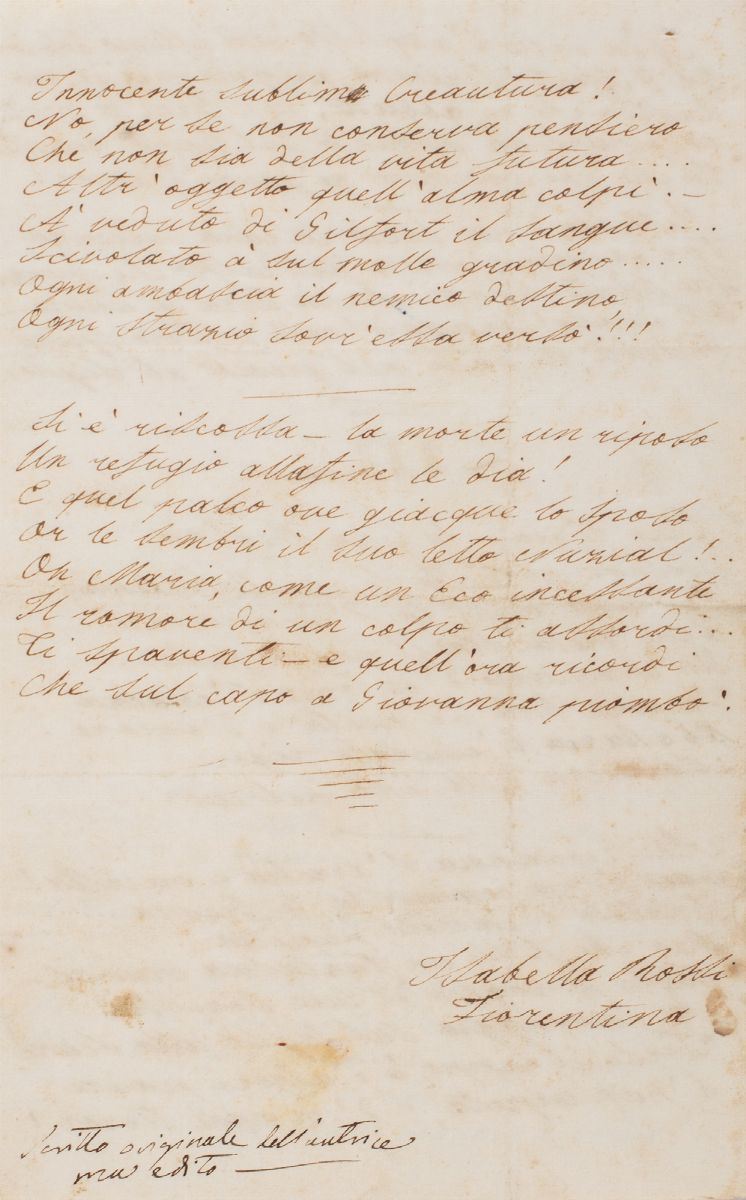 Innocente sublime Creautura!
No, per se non conserva pensiero
Che non sia della vita futura.....
Altr' oggetto quell' alma colpì. –
À veduto di Gilfort il sangue....
Scivolato à sul molle gradino.....
Ogni ambascia il nemico destino,
Ogni strazio sovr' essa versò!!!
Si è riscossa – la morte un riposo
Un refugio allafine le dia!
E quel palco ove giacque lo sposo
Or le sembri il suo letto Nuzial!..
Oh Maria, come un Eco incessante
Il romore di un colpo ti assordi...
Ti spaventi – e quell' ora ricordi
Che sul capo a Giovanna piombò.
Isabella Rossi
Fiorentina
Scritto originale dell'autrice
ma edito